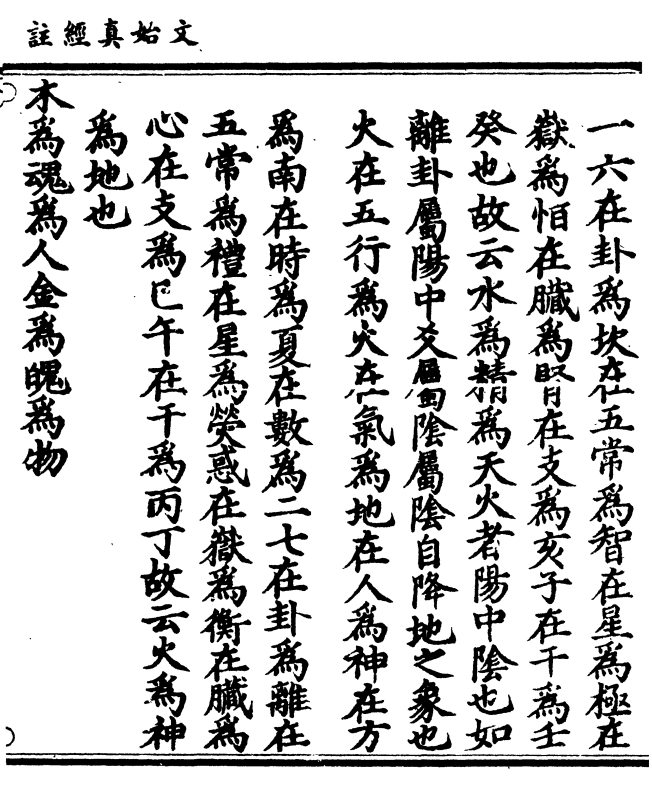 文始真經註
一六在卦爲坎在五常爲智在星爲極在
嶽爲恒在臟爲腎在支爲亥子在干爲壬
癸也故云水爲精爲天火者陽中陰也如
離卦屬陽中爻屬陰屬陰自降地之象也
火在五行爲火在氣爲地在人爲神在方
爲南在時爲夏在數爲二七在卦爲離在
五常爲禮在星爲熒惑在嶽爲衡在臟爲
心在支爲巳午在干爲丙丁故云火爲神
爲地也
木爲魂爲人金爲魄爲物